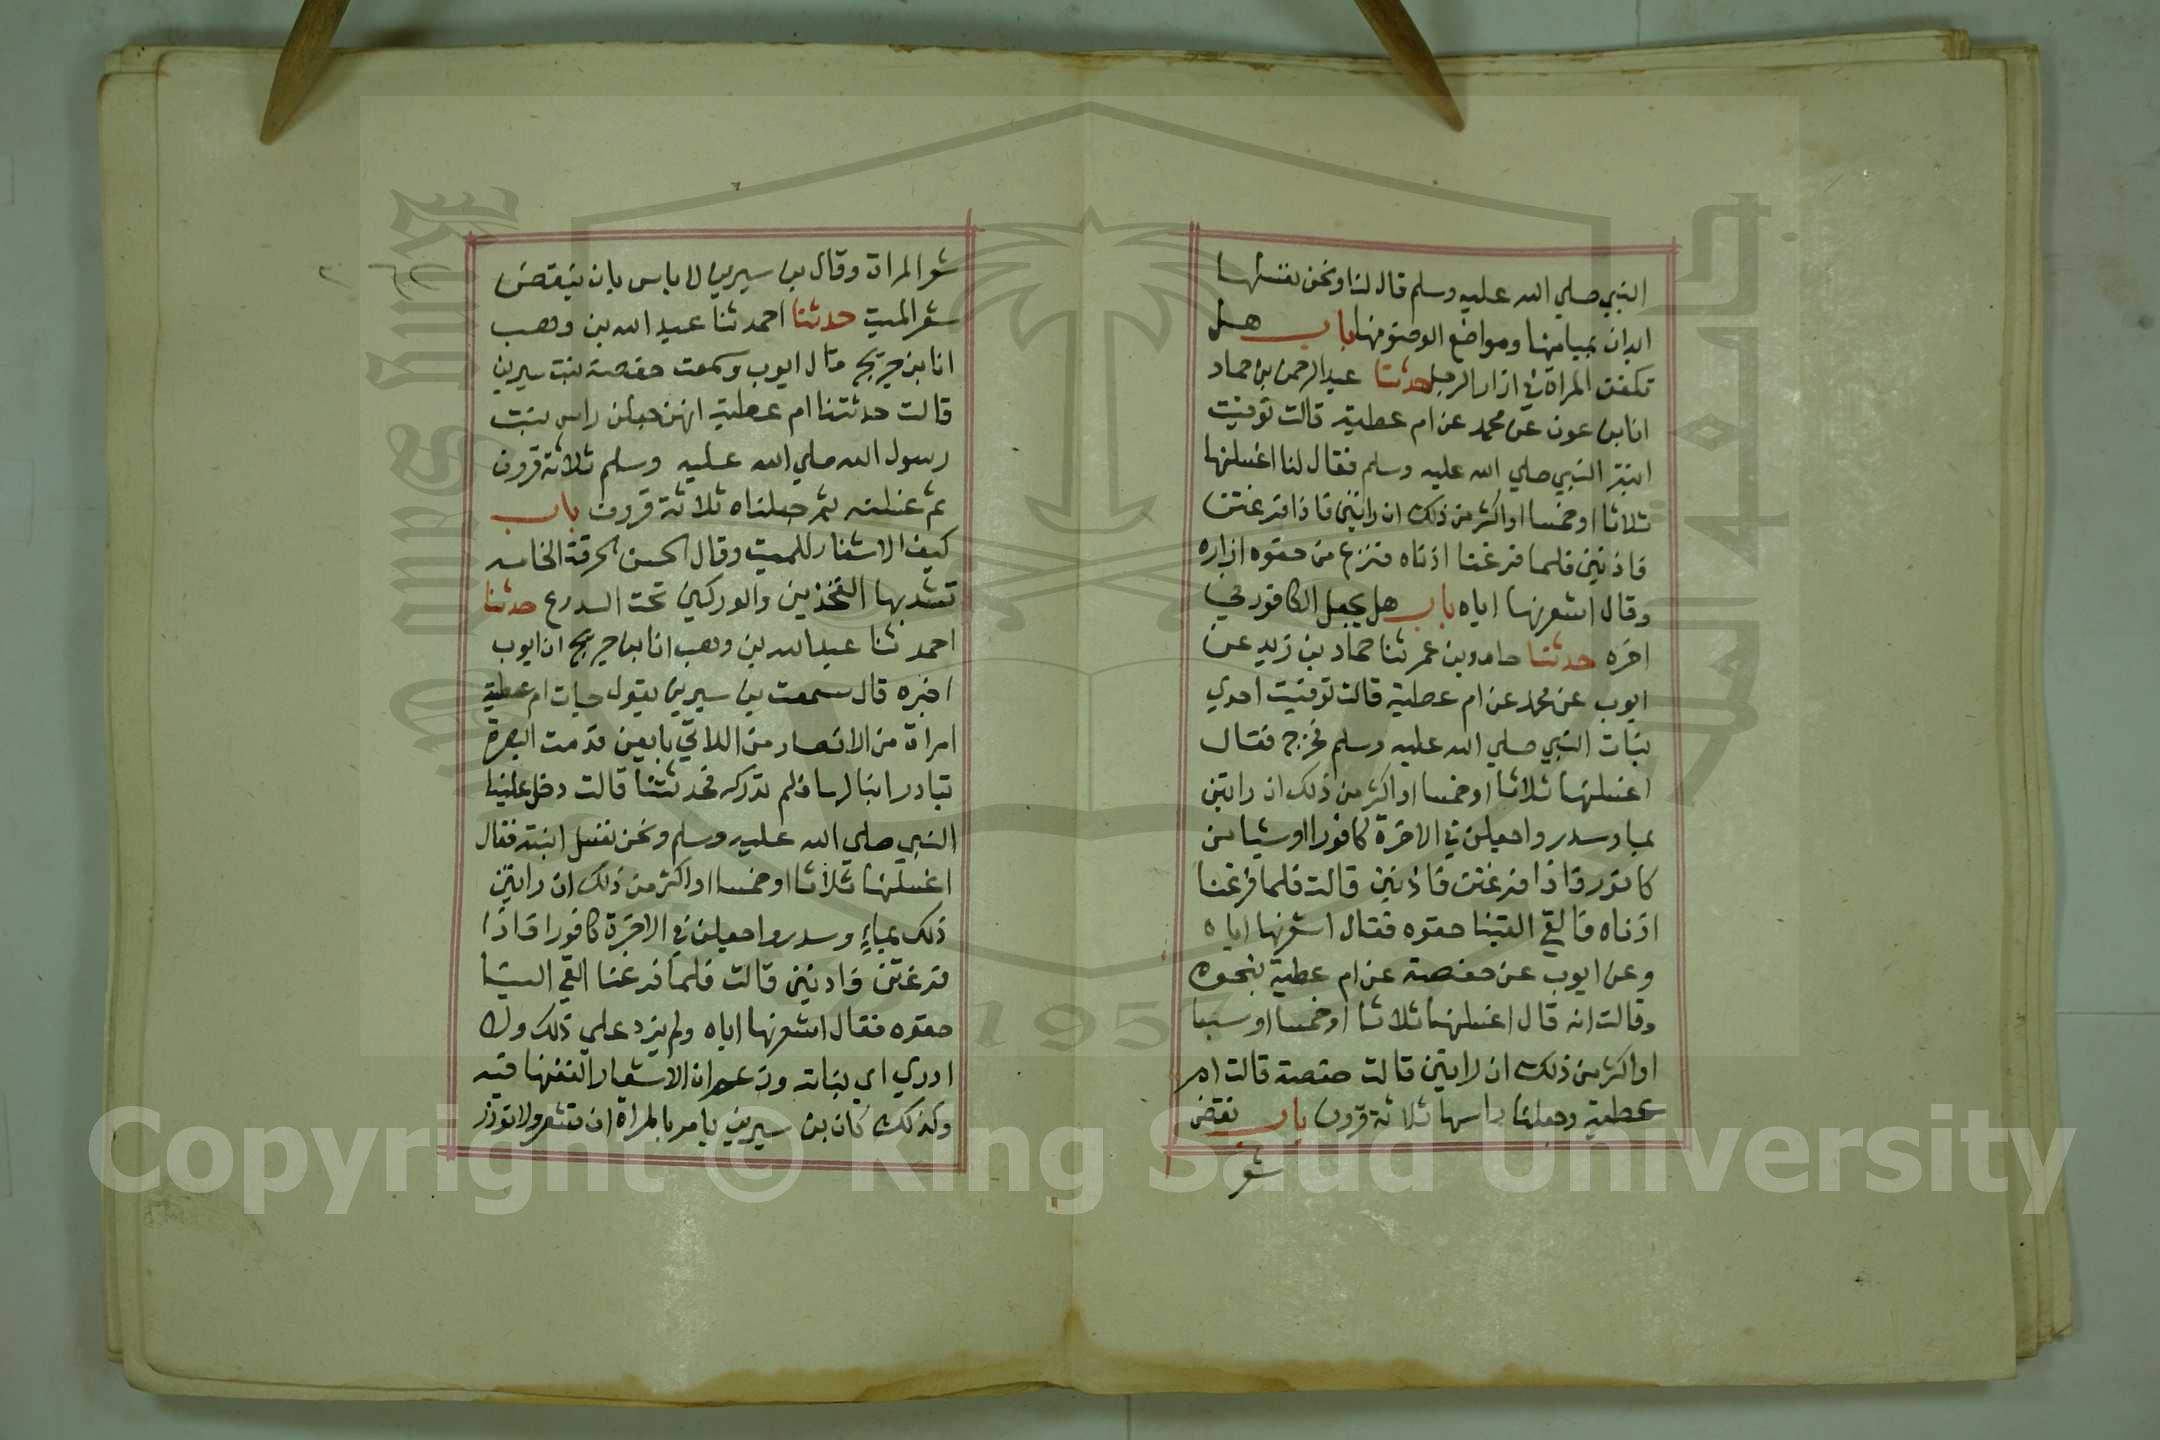 النبي صلي الله عليه وسلم قال لنا ونحن نغسلها
ابدان بميامنها ومواضع الوضو منها باب هل
تكفن المراة في ازار الرجل حدثنا عبد الرحمن بن حماد
انا بن عون عن محمد عن ام عطية قالت توفيت
ابنة النبي صلي الله عليه وسلم فقال لنا اغسلنها
ثلاثا او خمسا او اكثر من ذلك ان راتين فاذا فرغتن
فاذنني فلما فرغنا اذناه فنزع من حقوه ازاره
وقال اشعرنها اياه باب هل يجعل الكافور في
اخره حدثنا حامد بن عمر ثنا حماد بن زيد عن
ايوب عن محمد عن ام عطية قالت توفيت احدي
بنات النبي صلي الله عليه وسلم فخرج فقال
اغسلنها ثلاثا او خمسا او اكثر من ذلك ان راتين
بما وسدر واجعلن في الاخرة كافورا او شيا من
كافور فاذا فرغتن فاذنني قالت فلما فرغنا
اذناه فالقي الينا حقوه فقال اشعرنها اياه
وعن ايوب عن حفصة عن ام عطية بنحوه
وقالت انه قال اغسلنها ثلاثا او خمسا او سبعا
او اكثر من ذلك ان راتين قالت حفصة قالت ام
عطية وجعلنا راسها ثلاثة قرون باب نقض
شعر
شعر المراة وقال بن سيرين لا باس بان ينقض
شعر الميت حدثنا احمد ثنا عبد الله بن وهب
انا بن جريج قال ايوب وسمعت حفصة بنت سيرين
قالت حدثتنا ام عطية انهن جعلن راس بنت
رسول الله صلي الله عليه وسلم ثلاثة قرون
ثم غسلنه ثم جعلناه ثلاثة قرون باب
كيف الاشعار للميت وقال الحسن الخرقة الخامسه
تشد بها الفخذين والوركين تحت الدرع حدثنا
احمد ثنا عبد الله بن وهب انا بن جريج ان ايوب
اخبره قال سمعت بن سيرين يقول جات ام عطية
امراة من الانصار من اللاتي بايعن قدمت البصرة
تبادر ابنا لها فلم تدركه فحدثتنا قالت دخل علينا
النبي صلي الله عليه وسلم ونحن نغسل ابنته فقال
اغسلنها ثلاثا او خمسا او اكثر من ذلك ان راتين
ذلك بماء وسدر واجعلن في الاخرة كافورا فاذا
فرغتن فاذنني قالت فلما فرغنا القي الينا
حقوه فقال اشعرنها اياه ولم يزد علي ذلك ولا
ادري اي بناته وزعم ان الاشعار الففنها فيه
وكذلك كان بن سيرين يامر بالمراة ان تشعر ولا توزر
1957
Copyright © King Saud University